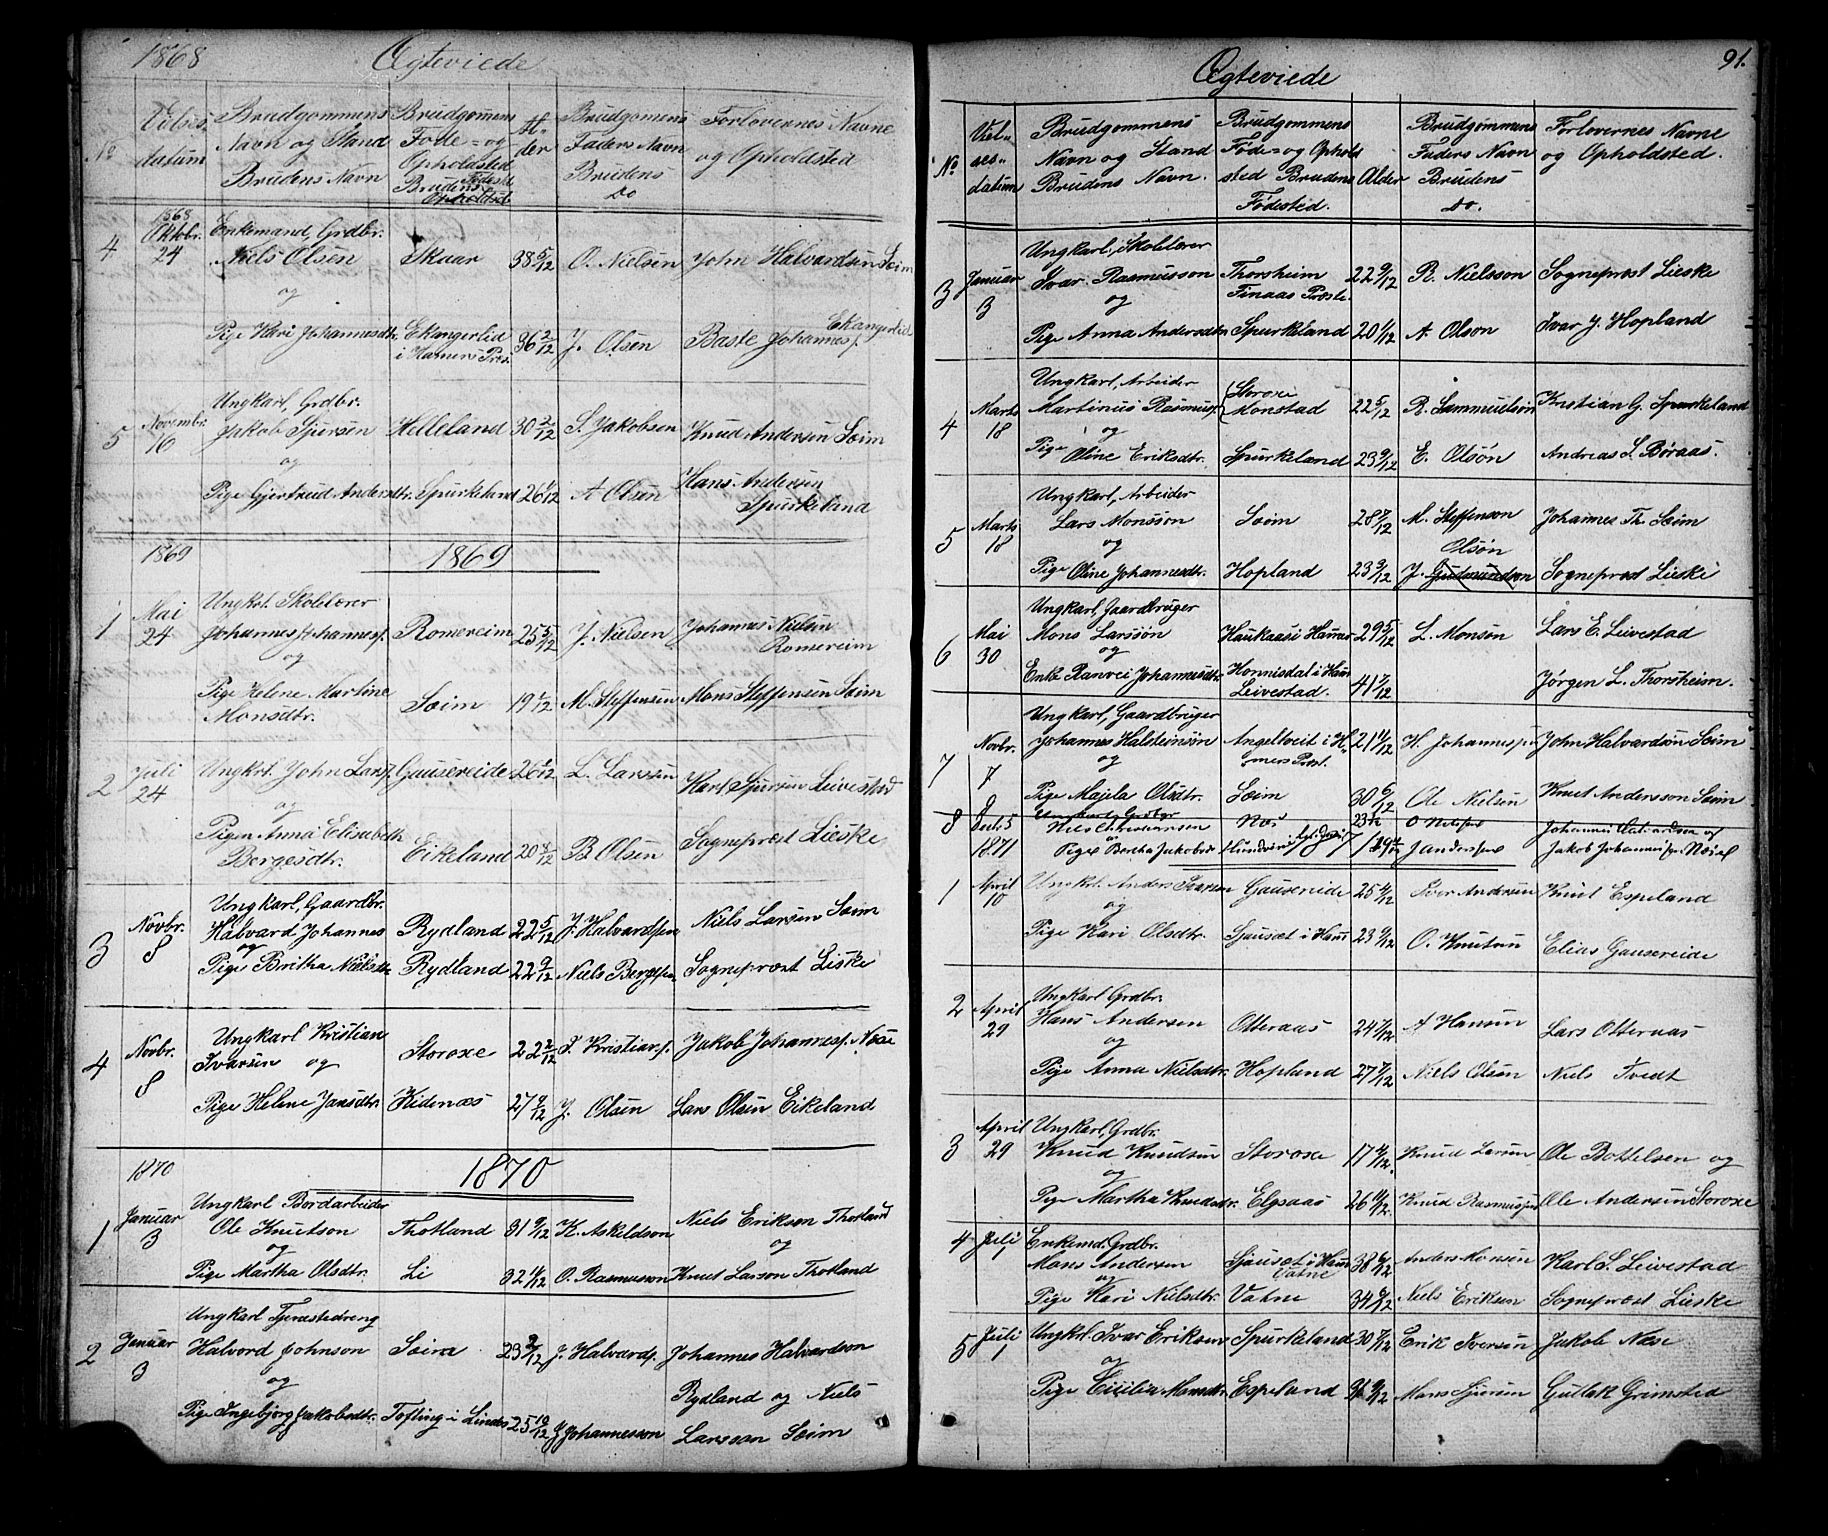 1868 Ægteviede
No Vilses datum Brudgommens Navn og Stand Brudens Navn Brudgomens Føde= og Opholdsted Brudens Fødest Opholdsd Al der Brudgomens Faders Navn Brudens Do Forlovernes Navne og Opholdsted
4 1868 Oktobr. 24 Enkemand, Grdbr.
Niels Olsen Skaar 38 5/12 O. Nielsen John Halvardsen Soim
og
Pige Kari Johannesdtr. Ekangerlid i Hamers Præs. 36 2/12 J. Olsen Baste Johannesf. Ekangerlid
5 Novembr. 16 Ungkarl, Grdbr.
Jakob Sjursen Helleland 30 2/12 S. Jakobsen Knud Andersen Soim
og
Pige Gjertrud Andersdtr. Spurkeland 26 1/12 A Olsen Hans Andersen Spurkeland
1869 1869
1 Mai 24 Ungkrl. Skolelærer
Johannes Johannesf. Romereim 25 5/12 J. Nielsen Johannes Nielsen Romereim
og
Pige Helene Martine Monsdtr. Soim 19 1/12 M. Steffensen Mons Steffensen Soim
2 Juli 24 Ungkrl. John Larsf. Gausereide 26 1/12 L. Larssen Karl Sjursen Leivestad
og
Pigen Anna Elisabeth Borgesdtr. Eikeland 20 8/12 B. Olsen Sogneprost Lieske
3 Novbr. 8 Ungkarl, Gaardbr.
Halvard Johannes Rydland 22 5/12 J. Halvardsen Niels Larsen Soim
og
Pige Britha Nielsdtr Rydland 22 9/12 Niels Bergesen Sogneprost Liske
4 Novbr. 8 Ungkarl Kristian Ivarsen og Storoxe 22 2/12 I. Kristians. Jakob Johannesf. Nøse
Pige Helene Jansdtr. Kidenæs 27 9/12 J. Olsen Lars Olsen Eikeland
1870 1870
1 Januar 3 Ungkarl Bordarbeider
Ole Knutson Thotland 31 9/12 K. Askeldson Niels Erikson Thotland
og og
Pige Martha Olsdtr. Li 32 11/12 O. Rasmusson Knut Larson Thotland
2 Januar 3 Ungkarl Tjenstedreng
Halvord Johnson Soim 23 9/12 J. Halvardsf. Johannes Halvardson
og Rydland og Niels
Pige Ingebjørg Jakobsdtr. Tofting i Lindås 25 10/12 J Johannesson Larsson Soim
91.
Ægteviede
No Viel= ses= datum Brudgommens Navn og Stand Brudens Navn. Brudgommens Føde= og Ophold sted Brudens Fødested. Alder Brudgommens Faders Navn Brudens Do. Forlovernes Navne og Opholdsted.
3 Januar 3 Ungkarl, Skolelærer
Ivar Rasmusson Thorsheim Finaas Præste. 22 9/12 R. Nielsson Sogneprost Lieske
og
Pige Anna Andersdtr. Spurkeland 20 1/12 A. Olson Ivar J. Hopland
4 Marts 18 Ungkarl, Arbeider
Martinus Rasmusf. Storoxe Monstad 22 5/12 R. Sammuelson Kristian G. Spurkeland
og
Pige Oline Eriksdtr. Spurkeland 23 9/12 E. Olsøn Andreas L. Boraas.
5 Marts 18 Ungkarl, Arbeider
Lars Monsson Soim 28 7/12 M. Steffenson Johannes Th. Soim
og Olsøn
Pige Oline Johannesdtr. Hopland 23 3/12 J. Gudmundsen Sogneprost Lieske
6 Mai 30 Ungkarl, Gaardbruger
Mons Larssøn Haukaasi Hamer 29 5/12 L. Monsøn Lars E. Leivestad
og
Enke Ranvei Johannesdtr. Honnisdal i Ham Leivestad. 41 7/12 Jørgen L. Thorsheim.
7 Novbr. 7 Ungkarl, Gaardbruger
Johannes Halsteinsøn Angeltveit i H omers Præst. 21 11/12 H. Johannesen John Halvardsøn Soim
og
Pige Majela Olsdtr. Soim 30 6/12 Ole Nielsen Knut Andersson Soim
8 5 Ungkarl, Grdbgr Nils Næs 23 1/12 O Nilsen Johannes og
1871 Pige Bertha Jakobsd J Andersen Jakob Johannesen
1 April 10 Ungkrl. Anders Ivarsen Gausereide 25 11/12 Iver Andersen Knut Espeland
og
Pige Kari Olsdtr. Sjauset i Ham 23 9/12 O. Knutsen Elias Gausereide
2 April 29 Ungkarl Grdbr.
Hans Andersen Otteraas 24 7/12 A Hansen Lars Otteraas
og
Pige Anna Nielsdtr. Hopland 27 7/12 Niels Olsen Niels Tvedt
3 April 29 Ungkarl, Grdbr.
Knud Knudsen Storoxe 17 11/12 Knud Larsen Ole Bottelsen og
og
Pige Martha Knudsdtr. Elgsaas 26 11/12 Knud Rasmussen Ole Andersen Storoxe
4 Juli 1 Enkemd. Grdbr.
Mons Andersen Sjauset i Ham Vatne 38 6/12 Anders Monsen Karl S. Leivestad
og
Pige Kari Nielsdtr. Vatne 34 6/12 Niels Eriksen Sogneprost Lieske
5 Juli 1 Ungkrl. Ivar Eriksen Spurkeland 30 7/12 Erik Iversen Jakob Nøse
og
Pige Cicilia Monsdtr. Espeland 31 9/12 Mons Sjursen Gutlak Grimsted